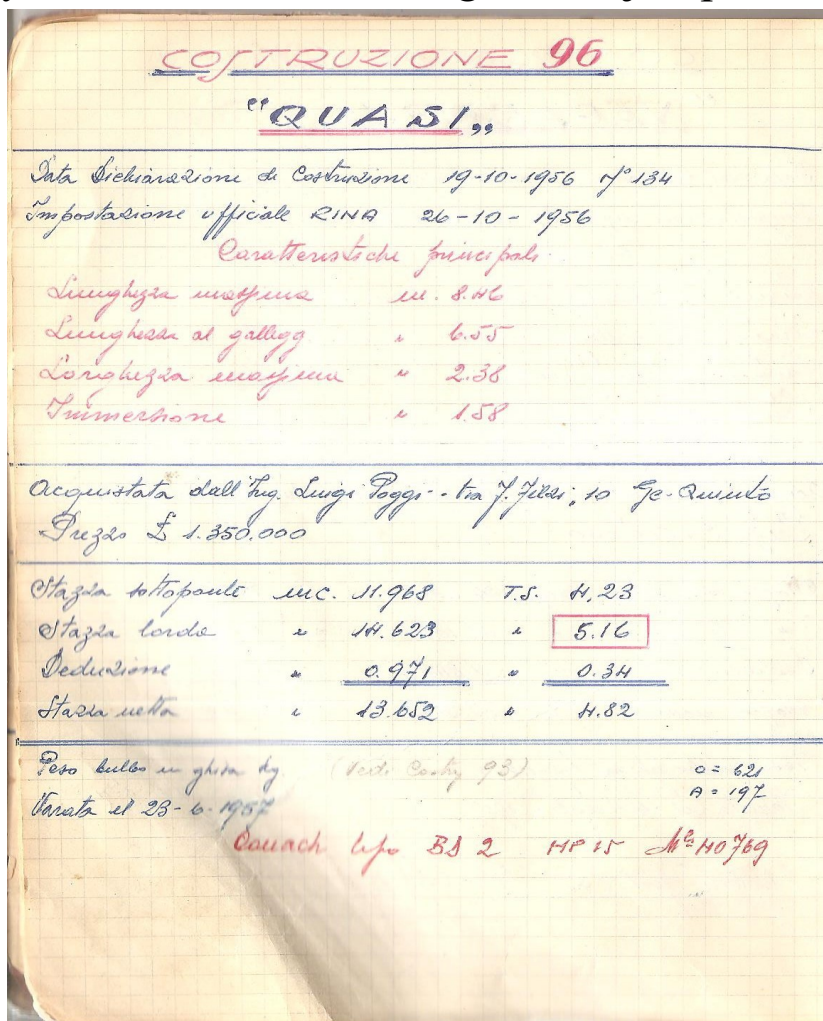 COSTRUZIONE 96
"QUASI"
Data Dichiarazione di Costruzione 19-10-1956 N° 134
Impostazione ufficiale RINA 26-10-1956
Caratteristiche principali
Lunghezza massima m. 8.46
Lunghezza al gallegg " 6.55
Larghezza massima " 2.38
Immersione " 1.58
Acquistata dall'Ing. Luigi Poggi - Via F. Filzi, 10 Ge-Quinto
Prezzo £ 1.350.000
Stazza sottoponte mc. 11.968 T.S. 4,23
Stazza lorda " 14.623 " 5.16
Deduzione " 0.971 " 0.34
Stazza netta " 13.652 " 4.82
Peso bulbo in ghisa kg. (Vedi Costrz 93) O = 621
A = 197
Varata il 23-6-1957
Couach tipo BS 2 HP 15 N° 40769